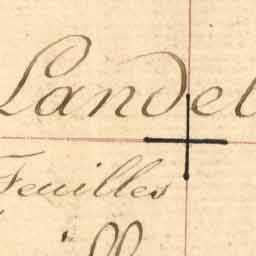 Landel
Feuilles